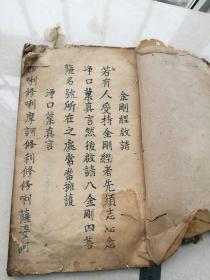 金剛經啟請
若有人受持金剛經者先須志心念
淨口業真言然後啟請八金剛四菩
薩名號所在之處常當擁護
淨口業真言
唎修唎摩訶修利修修唎薩婆訶